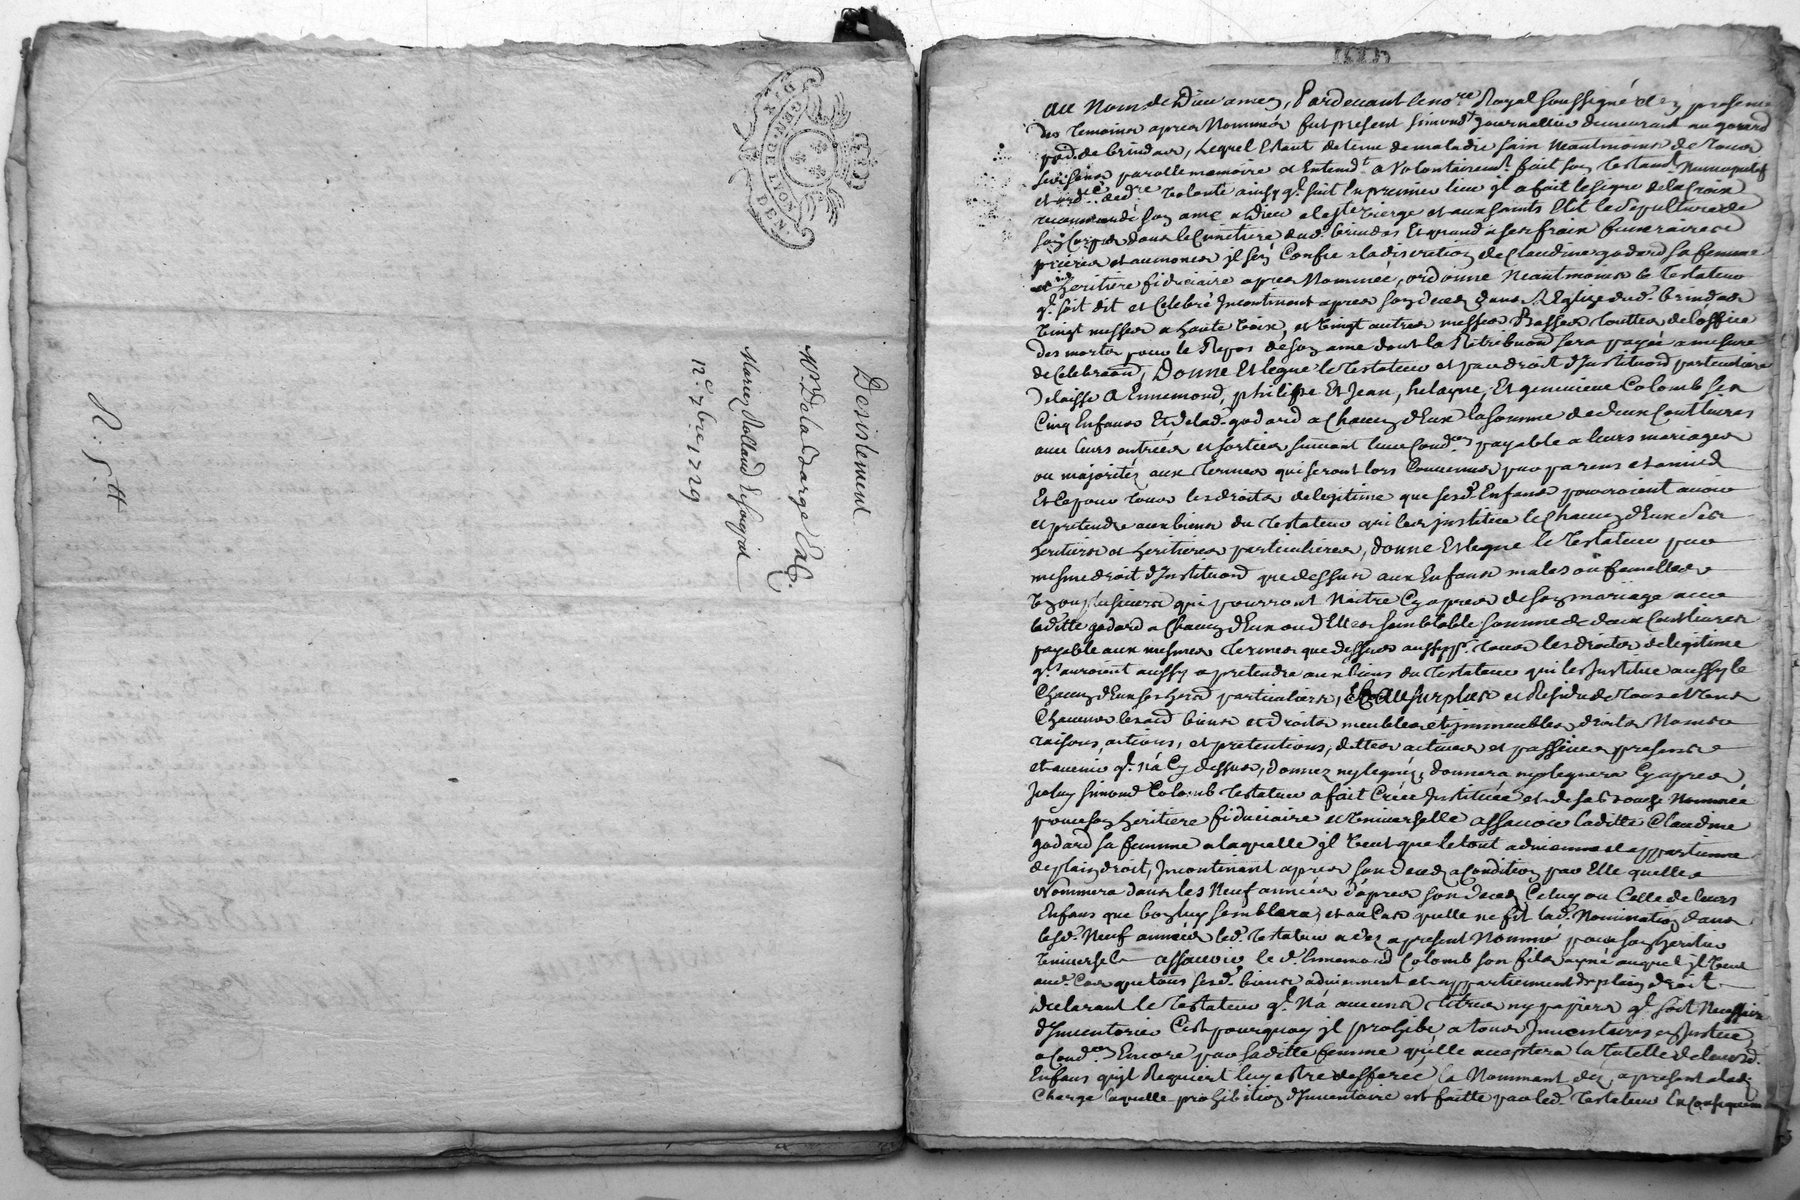 GEN. DE LYON
DIX DEN.
Desistement
Mr. De la
Mariez Rolland
12e. 7bre 1729
R. 5. tt
Au Nom de Dieu amen, Pardevant le no.re Royal soussigné et en presence
des temoins apres Nommés fut present Simond journallier demeurant au godard
de Brindas, Lequel Estant detenu de maladie sain neantmoins de tous
ses sens parolle memoire et Entend.t a Volontairem.t fait son testam.t Nuncupatif
et de d.re Volonté ainsy q.l suit En premier lieu jl a fait le signe de la Croix
recommandé son ame a Dieu a la s.te Vierge et aux saints Elit la sepulture de
son Corps dans le Cimetiere dud. Brindas Et quand a ses fraix funeraires
prieres et aumones jl s'en Confie a la discretion de Claudine godard sa femme
et heritiere fiduciaire apres Nommée, ordonne Neantmoins le Testateur
q.l soit dit et Celebré Jncontinent apres son deces dans l'Eglise dud. Brindas
Vingt messes a haute Voix, et Vingt autres messes Basses touttes de l'office
des morts pour le Repos de son ame dont la Retribuond sera payée a mesure
de Celebraond, Donne Et legue le Testateur et par droit d'Jnstituond particuliere
delaisse A Ennemond, philippe Et Jean, helayne, Et genevieve Colomb ses
Cinq Enfans Et de lad. godard a Chacun d'Eux la somme de deux Cent livres
avec leurs entrées et sorties suivant leur Cond.on payable a leurs mariages
ou majorités aux termes qui seront lors Convenus par parens et amis
Et Ce pour tous les droits de legitime que sesd. Enfans pourroient avoir
et pretendre aux biens du Testateur qui les jnstitue le Chacun d'Eux ses
heritiers et heritieres particulieres, donne Et legue le Testateur par
mesme droit d'Jnstituond que dessus aux Enfans males ou femelles
un ou plusieurs qui pourront Naitre Cy apres de son mariage avec
laditte godard a Chacun d'Eux ou d'Elles semblable somme de deux Cent livres
payable aux mesmes termes que dessus aussy p.r tous les droits de legitime
q.ls auroient aussy a pretendre aux biens du Testateur qui les Jnstitue aussy le
Chacun d'Eux ses particuliers, Et Au surplus et Residu de tous et Uns
Chacuns lesd biens et droits meubles et jmmeubles droits Noms
raisons, actions, et pretentions, dettes actives et passives presents
et avenir q.l n'a Cy dessus, donnez ny leguez, donnera ny leguera Cy apres
Jceluy Simond Colomb Testateur a fait Créé Jnstituée et de sa bouche Nommée
pour son heritiere fiduciaire et Universelle assavoir laditte Claudine
godard sa femme a laquelle jl Veut que le tout advienne et appartienne
de plain droit, Jncontinent apres son deces a Condition par Elle quelle
Nommera dans les Neuf années d'apres son deces Celuy ou Celle de leurs
Enfans que bon luy semblera, et au Cas quelle ne fit lad. Nomination dans
lesd. Neuf années led. Testateur a des a present Nommé pour son heritier
Universel assavoir le d. Ennemond Colomb son fils ayné auquel jl Veut
aud. Cas que tous sesd. biens adviennent et appartiennent de plain droit
declarant le Testateur q.l N'a aucuns titres ny papiers q.l soit Necessaire
d'Jnventorier C'est pourquoy jl prohibe a tous Jnventaires en Justice
a Cond.on Encore par laditte femme qu'elle acceptera la tutelle de leursd.
Enfans qu'jl Requiert luy estre defferée la Nommant des a present a lad.
Charge laquelle prohibition d'Jnventaire est faitte par led. Testateur En Consequence